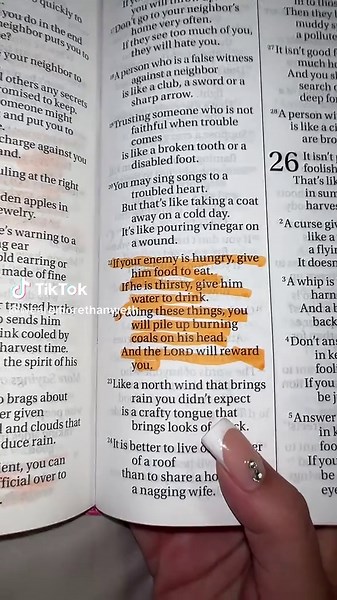 quickly to
you do in the end
neighbor puts you to
your neighbor to
others any secrets
to keep.
might
and put you to
charge against you
at the right
apples in
warning to a
ear
earring or
made of fine
trusted by
sends him
cooled by
harvest time.
the spirit of his
brags about
given
and clouds that
rain.
you can
over to
Don't go to your neighbor's
home very often.
If they see too much of you,
they will hate you.
18 A person who is a false witness
against a neighbor
is like a club, a sword or a
sharp arrow.
19 Trusting someone who is not
faithful when trouble
comes
is like a broken tooth or a
disabled foot.
20 You may sing songs to a
troubled heart.
But that's like taking a coat
away on a cold day.
It's like pouring vinegar on
a wound.
21 If your enemy is hungry, give
him food to eat.
If he is thirsty, give him
water to drink.
22 doing these things, you
will pile up burning
coals on his head.
And the LORD will reward
you.
23 Like a north wind that brings
rain you didn't expect
is a crafty tongue that
brings looks of
24 It is better to live
of a roof
than to share a
a nagging wife.
Then they
muddy
a
27 It isn't good
much
And you
search
deep
28 A person
is like a
are
26 It isn't
That's
in
harvest
2 A curse
like a
a
It doesn't
3 A whip is
And a
4 Don't
in
If you
be
5 Answer
in
If you
be
TikTok